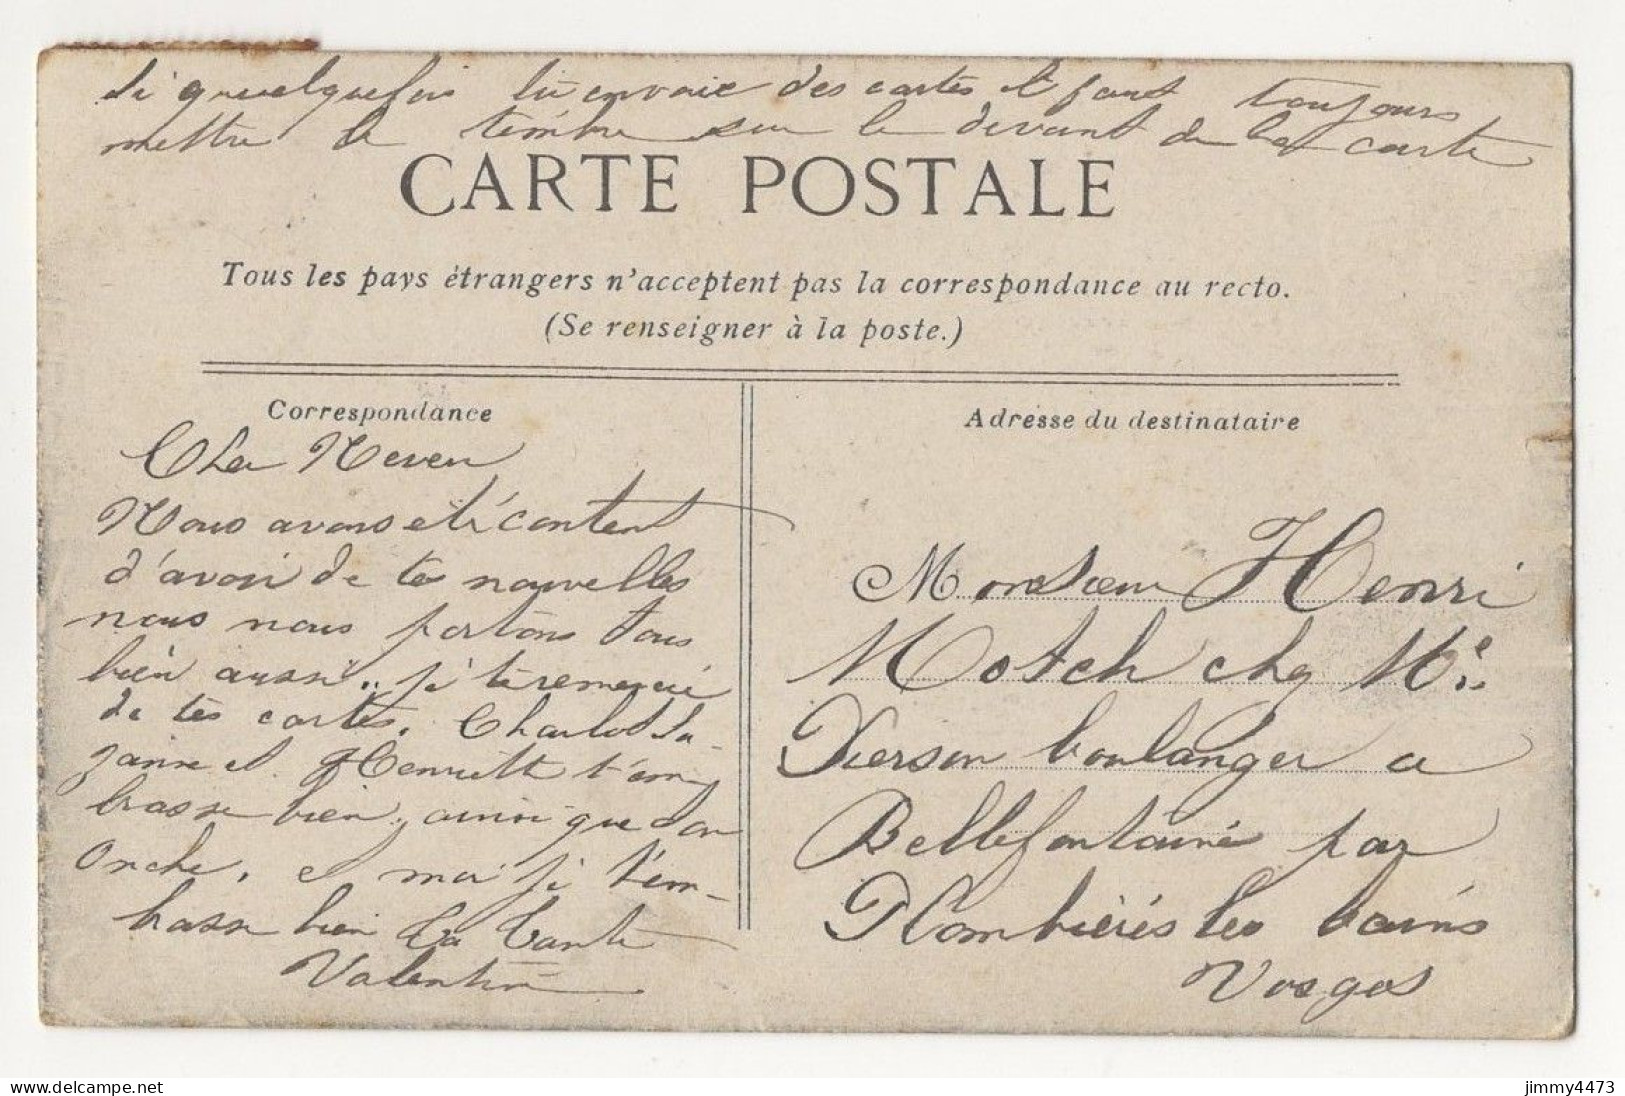 Si quelquefois tu envoie des cartes il faut toujours
mettre le timbre sur le devant de la carte
CARTE POSTALE
Tous les pays étrangers n'acceptent pas la correspondance au recto.
(Se renseigner à la poste.)
Correspondance
Cher Neveu
Nous avons eté content
d'avoir de tes nouvelles
nous nous portons tous
bien aussi, je te remercie
de tes cartes. Charlot Su-
zanne et Henriette t'em
brasse bien, ainsi que ton
Oncle, et moi je t'em-
brasse bien Ta Tante
Valentine
Adresse du destinataire
Monsieur Henri
Motch chez Mr
Pierson boulanger a
Bellefontaine par
Plombières les bains
Vosges
jimmy4473
www.delcampe.net